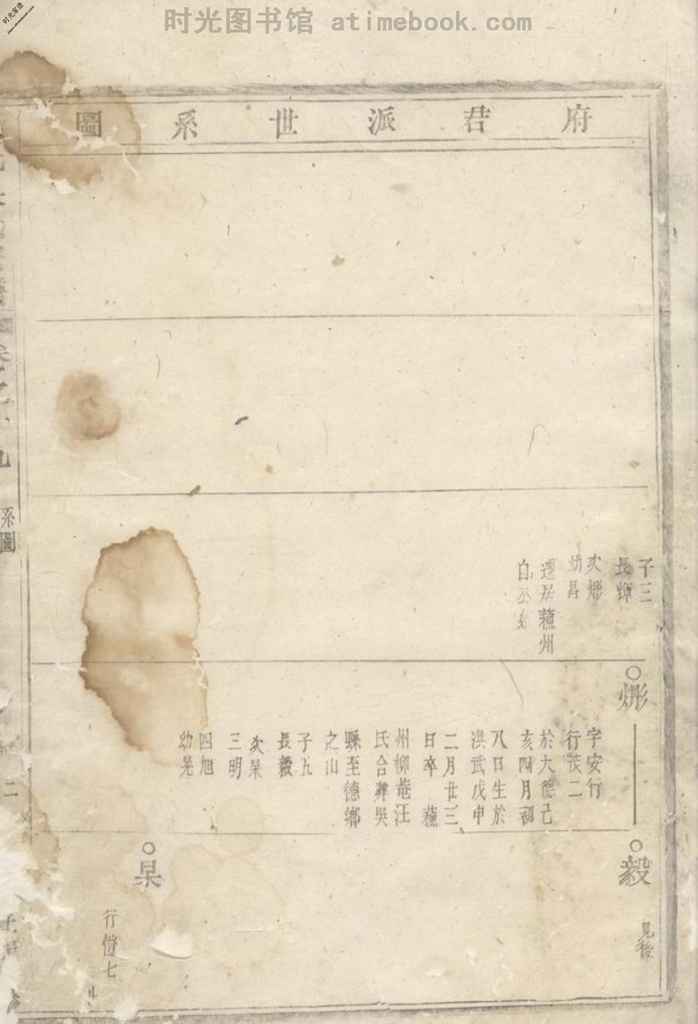 时光图书馆 atimebook.com
府君派世系圖
子三
長
次
幼昌
遷居蘄州
白
字安行
行茂二
於大德己
亥四月初
八日生於
洪武戊申
二月廿三
日卒 蘄
州柳菴汪
氏合葬吳
縣至德鄉
之山
子五
長毅
次杲
三明
四旭
幼晃
毅
見後
杲
行 七
卷之十九
系圖
二